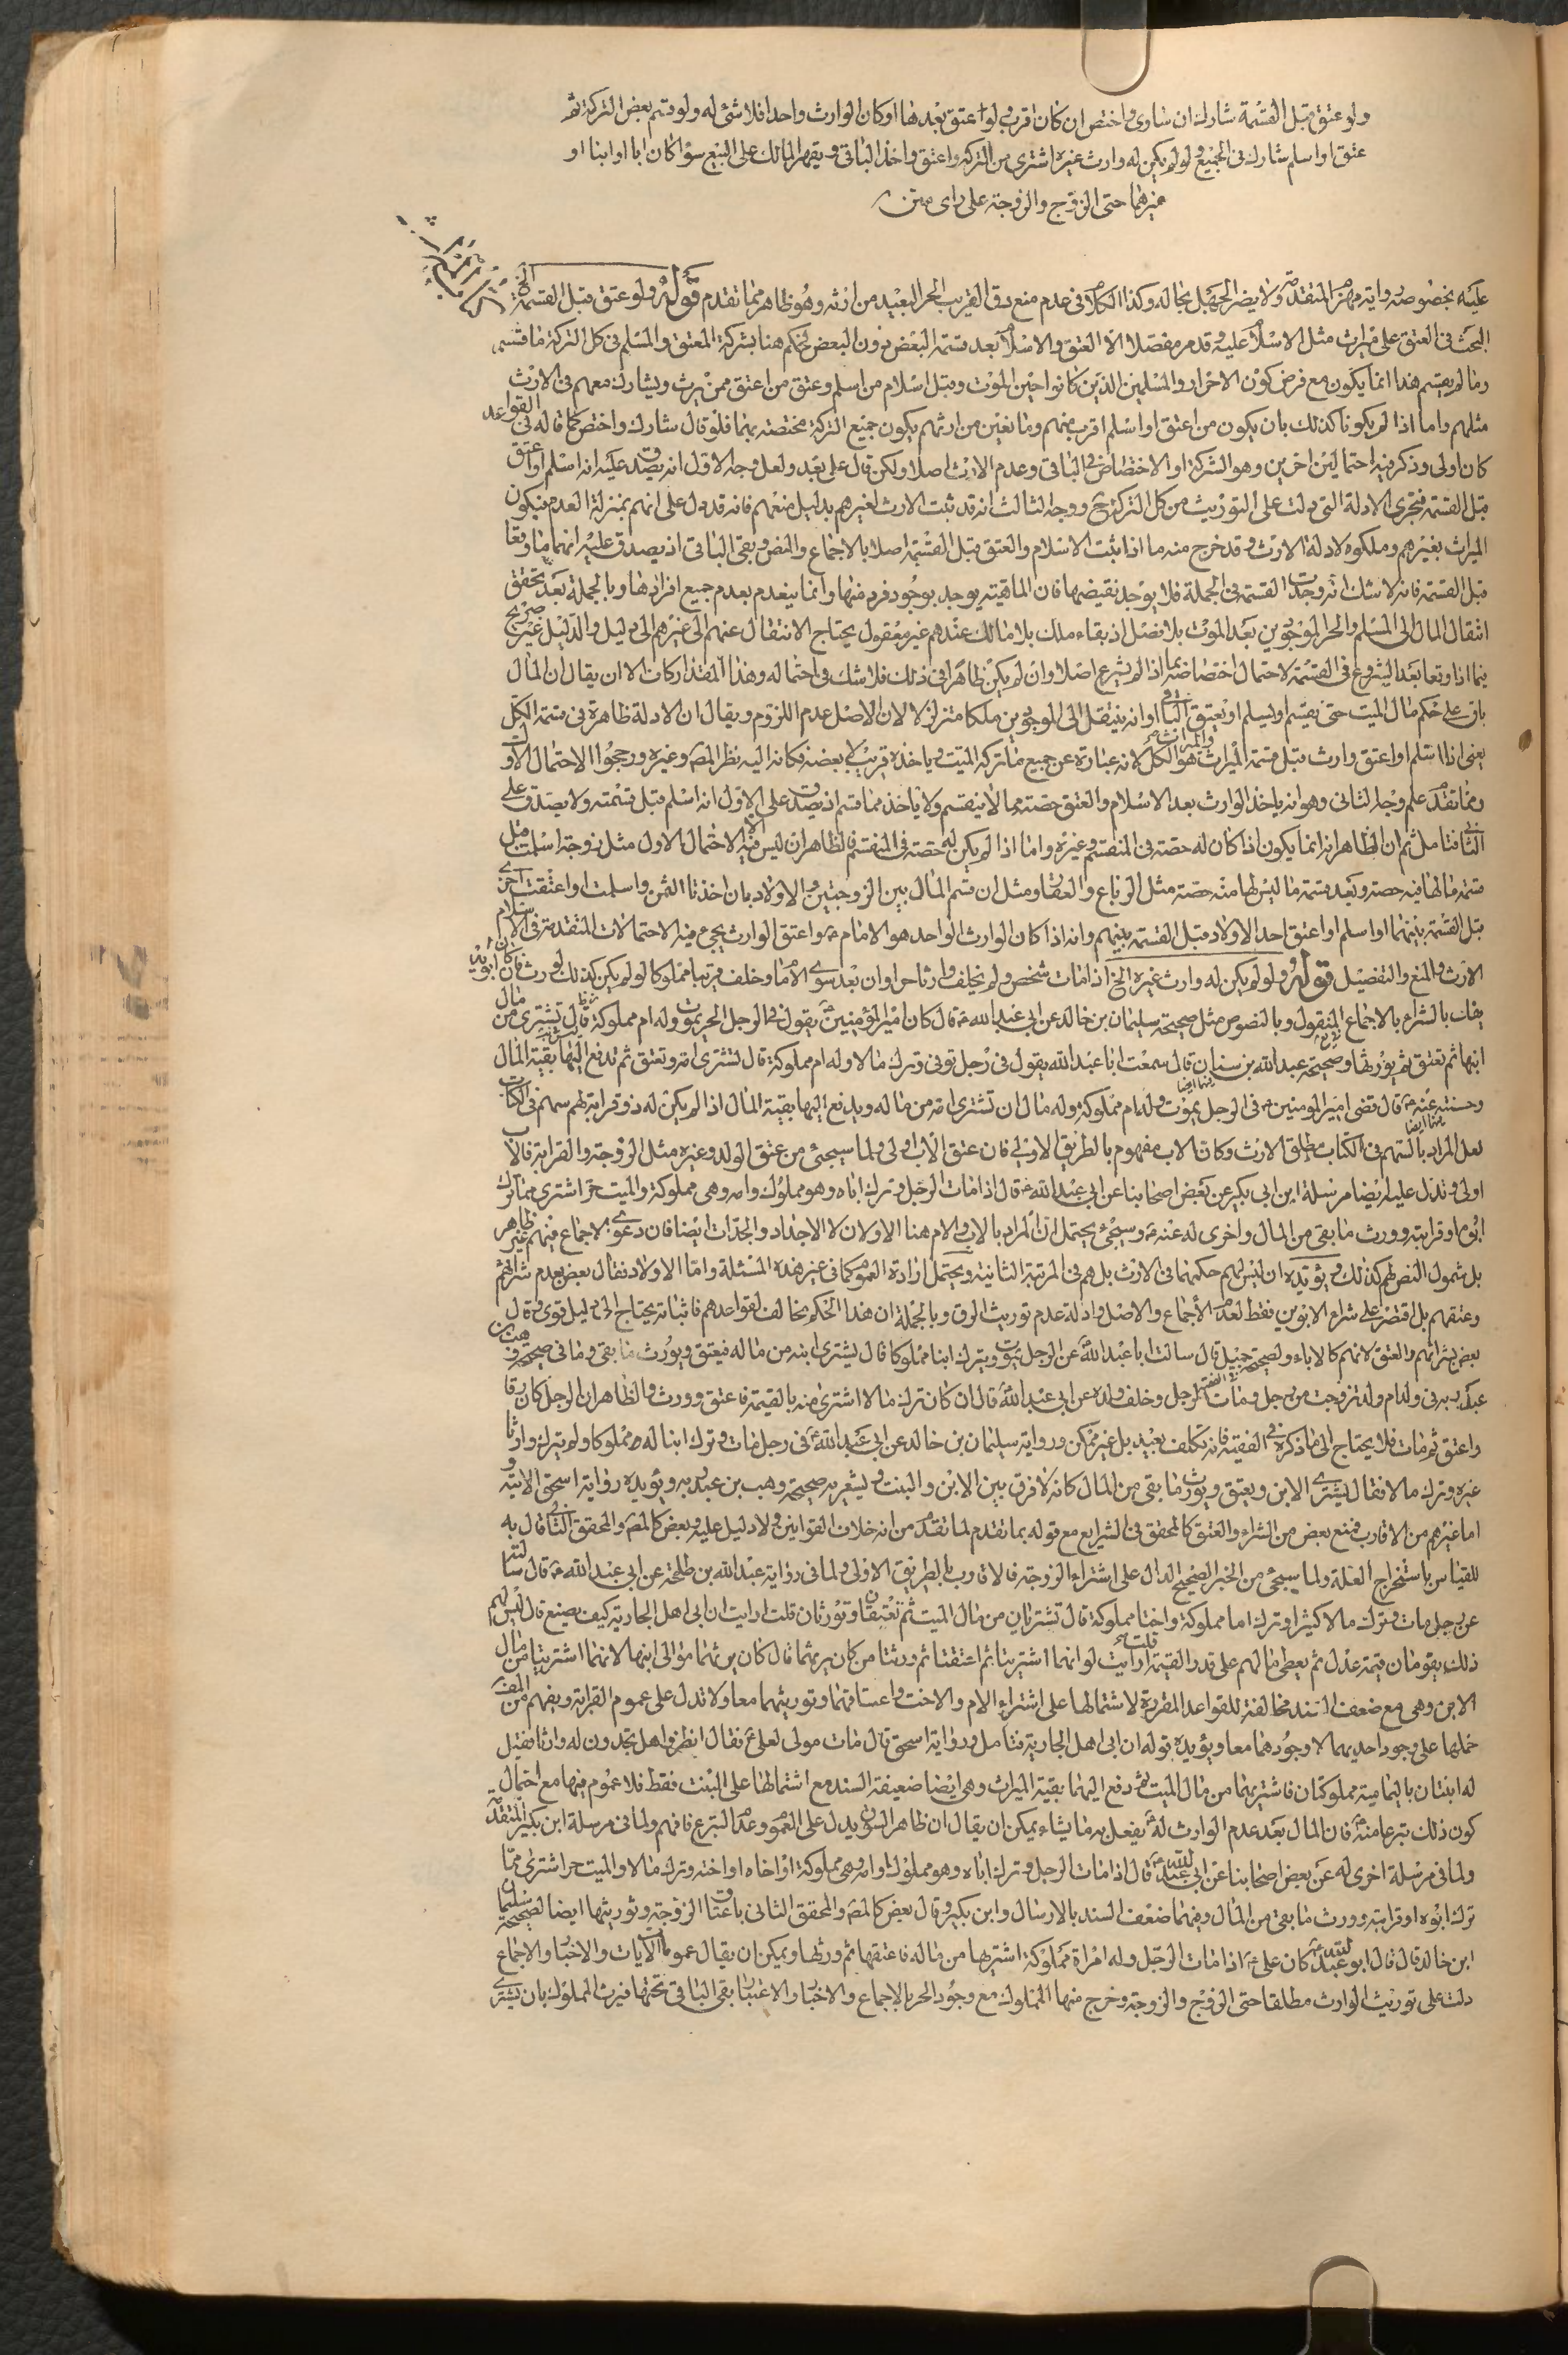 ولو عتق قبل القسمة شارك ان ساوى واختص ان كان اقرب ولو اعتق بعدها او كان الوارث واحدا فلا شئ له ولو قسم بعض التركة ثم
عتق او اسلم شارك فى الجميع ولو لم يكن له وارث غيره اشترى من التركة واعتق واخذ الباقى ويقهر المالك على البيع سواء كان ابا او ابنا او
غيرهما حتى الزوج والزوجة على راى متن
عليه بخصوصه رواية مهزم المتقدمة ولا يضر الجهل بحاله وكذا الكلام فى عدم منع رق القريب الحر البعيد من ارثه وهو ظاهر مما تقدم قوله ولو عتق قبل القسمة الخ
البحث فى العتق على ميراث مثل الاسلام عليه وقد مر مفصلا الا العتق والاسلام بعد قسمة البعض دون البعض فحكم هنا بشركة المعتق والمسلم فى كل التركة ما قسم
وما لم يقسم هذا انما يكون مع فرض كون الاحرار والمسلمين الذين كانوا حين الموت وقبل اسلام من اسلم وعتق من اعتق ممن يرث ويشارك معهم فى الارث
مثلهم واما اذا لم يكونوا كذلك بان يكون من اعتق او اسلم اقرب منهم ومانعين من ارثهم يكون جميع التركة مختصة بهما فلو قال شارك واختص كما قاله فى القواعد
كان اولى وذكر فيه احتمالين اخرين وهو الشركة او الاختصاص فى الباقى وعدم الارث اصلا ولكن قال على بعد ولعل وجه الاول انه يصدق عليه انه اسلم او اعتق
قبل القسمة فتجرى الادلة التى دلت على التوريث من كل التركة ح ووجه الثالث انه قد ثبت الارث لغيرهم بدليل منعهم فانه قد دل على انهم بمنزلة العدم فيكون
الميراث بغيرهم وملكوه لادلة الارث وقد خرج منه ما اذا ثبت الاسلام والعتق قبل القسمة اصلا بالاجماع والنص وبقى الباقى اذ يصدق عليه انهما ما وقعا
قبل القسمة فانه لا شك انه وجدت القسمة فى الجملة فلا يوجد نقيضها فان الماهية يوجد بوجود فرد منها وانما ينعدم بعدم جميع افرادها وبالجملة بعد تحقق
انتقال المال الى المسلم والحر الموجودين بعد الموت بلا فصل اذ بقاء ملك بلا مالك عندهم غير معقول يحتاج الانتقال عنهم الى غيرهم الى دليل والدليل غير صريح
فيما اذا وقعا بعد الشروع فى القسمة لاحتمال اختصاصه بما اذا لم يشرع اصلا وان لم يكن ظاهرا فى ذلك فلا شك فى احتماله وهذا المقدار كاف الا ان يقال ان المال
باق على حكم مال الميت حتى يقسم او يسلم او يعتق الباقى او انه ينتقل الى الموجودين ملكا متزلزلا لان الاصل عدم اللزوم ويقال ان الادلة ظاهرة فى قسمة الكل
يعنى اذا اسلم او اعتق وارث قبل قسمة الميراث والميراث هو الكل لانه عبارة عن جميع ما تركه الميت وياخذه قريب لا بعضه فكانه اليه نظر المصـ وغيره ورجحوا الاحتمال الاول
ومما تقدم علم وجه الثانى وهو انه ياخذ الوارث بعد الاسلام والعتق حصته مما لا ينقسم ولا ياخذ مما قسم اذ يصدق على الاول انه اسلم قبل قسمته ولا يصدق على
الثانى فتامل ثم ان الظاهر انه انما يكون اذا كان له حصته فى المنقسم وغيره واما اذا لم يكن له حصته فى المنقسم فالظاهر ان ليس فيه الا الاحتمال الاول مثل زوجة اسلمت قبل
قسمة ما لها فيه حصة وبعد قسمة ما ليس لها منه حصة مثل الرباع والعقار ومثل ان قسم المال بين الزوجتين والاولاد بان اخذتا الثمن واسلمت او اعتقت اخرى
قبل القسمة بينهما او اسلم او اعتق احد الاولاد قبل القسمة بينهم وانه اذا كان الوارث الواحد هو الامام ع واعتق الوارث يجئ فيه الاحتمالات المتقدمة فى الاسلام
الارث والمنع والتفصيل قوله ولو لم يكن له وارث غيره الخ اذا مات شخص ولم يخلف وارثا حرا وان بعد سوى الامام وخلف قريبا مملوكا لو لم يكن كذلك لورث فان كان ابويه
يفك بالشراء بالاجماع المنقول وبالنصوص مثل صحيحة سليمان بن خالد عن ابى عبد الله ع قال كان امير المؤمنين ع يقول فى الرجل الحر يموت وله ام مملوكة قال تشترى من مال
ابنها ثم تعتق ثم يورثها وصحيحة عبد الله بن سنان قال سمعت ابا عبد الله يقول فى رجل توفى وترك مالا وله ام مملوكة قال تشترى امه وتعتق ثم تدفع اليها بقية المال
وحسنته عنه ع قال قضى امير المؤمنين ع فى الرجل يموت وله ام مملوكة وله مال ان تشترى امه من ماله ويدفع اليها بقية المال اذا لم يكن له ذو قرابة لهم سهم فى الكتاب
لعل المراد بالسهم فى الكتاب مطلق الارث وكان الاب مفهوم بالطريق الاولى فان عتق الاب اولى ولما سيجئ من عتق الولد وغيره مثل الزوجة والقرابة فالاب
اولى وتدل عليه ايضا مرسلة ابن ابى بكير عن بعض اصحابنا عن ابى عبد الله ع قال اذا مات الرجل وترك اباه وهو مملوك وامه وهى مملوكة والميت حر اشترى مما ترك
ابوه او قرابته وورث ما بقى من المال واخرى له عنه ع وسيجئ يحتمل ان المراد بالاب والام هنا الاولان لا الاجداد والجدات ايضا فان دعوى الاجماع فيهم غير ظاهر
بل شمول النص لهم كذلك ويؤيده ان ليس لهم حكمهما فى الارث بل هم فى المرتبة الثانية ويحتمل ارادة العموم كما فى غير هذه المسئلة واما الاولاد فقال بعض بعدم شرائهم
وعتقهم بل اقتصر على شراء الابوين فقط لعدم الاجماع والاصل وادلة عدم توريث الرق وبالجملة ان هذا الحكم مخالف لقواعدهم فاثباته يحتاج الى دليل قوى وقال
بعض بشرائهم والعتق لانهم كالاباء ولصحيحة جميل قال سالت ابا عبد الله ع عن الرجل يموت ويترك ابنا مملوكا قال يشترى ابنه من ماله فيعتق ويورث ما بقى وما فى صحيحة وهب بن
عبد ربه فى ولد ام ولد تزوجت من رجل ومات الرجل وخلف ولده عن ابى عبد الله ع قال ان كان ترك مالا اشترى منه بالقيمة فاعتق وورث والظاهر ان الرجل كان رقا
واعتق ثم مات فلا يحتاج الى ما ذكره فى الفقيه فانه تكلف بعيد بل غير ممكن ورواية سليمان بن خالد عن ابى عبد الله ع فى رجل مات وترك ابنا له مملوكا ولم يترك وارثا
غيره وترك مالا فقال يشترى الابن ويعتق ويورث ما بقى من المال كانه لا فرق بين الابن والبنت ويشعر به صحيحة وهب بن عبد ربه ويؤيده رواية اسحق الاتية و
اما غيرهم من الاقارب فمنع بعض من الشراء والعتق كالمحقق فى الشرايع مع قوله بما تقدم لما تقدم من انه خلاف القوانين ولا دليل عليه وبعض كالمصـ والمحقق الثانى قال به
للقياس باستخراج العلة ولما سيجئ من الخبر الصحيح الدال على اشتراء الزوجة فالاقارب بالطريق الاولى ولما فى رواية عبد الله بن طلحة عن ابى عبد الله ع قال سالته
عن رجل مات وترك مالا كثيرا وترك اما مملوكة واختا مملوكة قال تشتريان من مال الميت ثم تعتقان وتورثان قلت ارايت ان ابى اهل الجارية كيف يصنع قال ليس لهم
ذلك يقومان قيمة عدل ثم يعطى مالهم على قدر القيمة قلت ارايت لو انهما اشتريتا ثم اعتقتا ثم ورثتا من كان يرثهما قال كان يرثهما موالى ابنها لانهما اشتريتا من مال
الابن وهى مع ضعف السند مخالفة للقواعد المقررة لاشتمالها على اشتراء الام والاخت واعتاقهما وتوريثهما معا ولا تدل على عموم القرابة ويفهم من الفقـ
حملها على وجود احديهما لا وجودهما معا ويؤيده قوله ان ابى اهل الجارية فتامل ورواية اسحق قال مات مولى لعلى ع فقال انظروا هل تجدون له وارثا فقيل
له ابنتان باليمامية مملوكتان فاشتريهما من مال الميت ثم دفع اليهما بقية الميراث وهى ايضا ضعيفة السند مع اشتمالها على البنت فقط فلا عموم فيها مع احتمال
كون ذلك تبرعا منه ع فان المال بعد عدم الوارث له ع يفعل به ما يشاء يمكن ان يقال ان ظاهر السوق يدل على العموم وعدم التبرع فافهم ولما فى مرسلة ابن بكير المتقدمة
ولما فى مرسلة اخرى له عن بعض اصحابنا عن ابى عبد الله ع قال اذا مات الرجل وترك اباه وهو مملوك او امه وهى مملوكة او اخاه او اخته وترك مالا والميت حر اشترى مما
ترك ابوه او قرابته وورث ما بقى من المال وفيهما ضعف السند بالارسال وابن بكير وقال بعض كالمصـ والمحقق الثانى باعتاق الزوجة وتوريثها ايضا لصحيحة سليمان
ابن خالد قال قال ابو عبد الله ع كان على ع اذا مات الرجل وله امراة مملوكة اشتريها من ماله فاعتقها ثم ورثها ويمكن ان يقال عموم الايات والاخبار والاجماع
دلت على توريث الوارث مطلقا حتى الزوج والزوجة وخرج منها المملوك مع وجود الحر بالاجماع والاخبار والاعتبار بقى الباقى تحتها فيرث المملوك بان يشترى